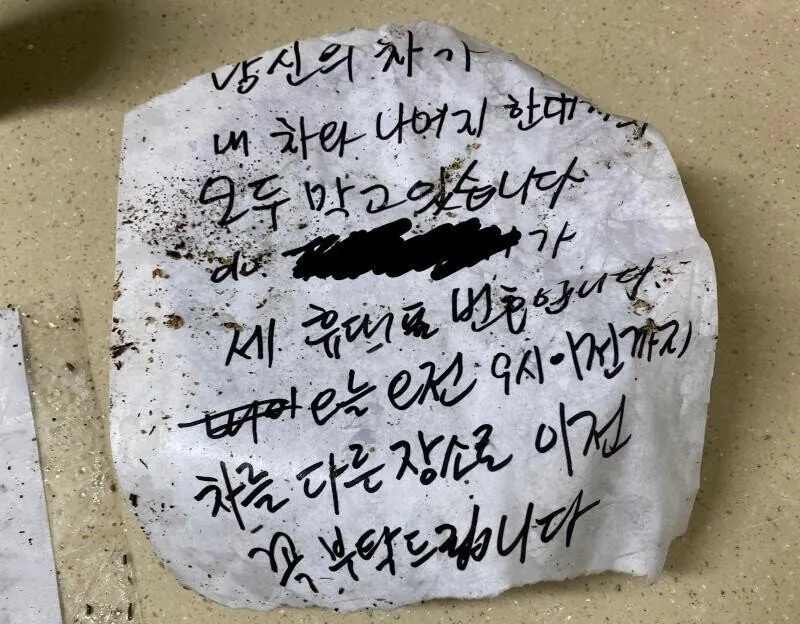 당신의 차가
내 차와 나머지 한대까지
모두 막고 있습니다
010 가
제 휴대폰 번호입니다.
오늘 오전 9시 이전까지
차를 다른 장소로 이전
꼭 부탁드립니다